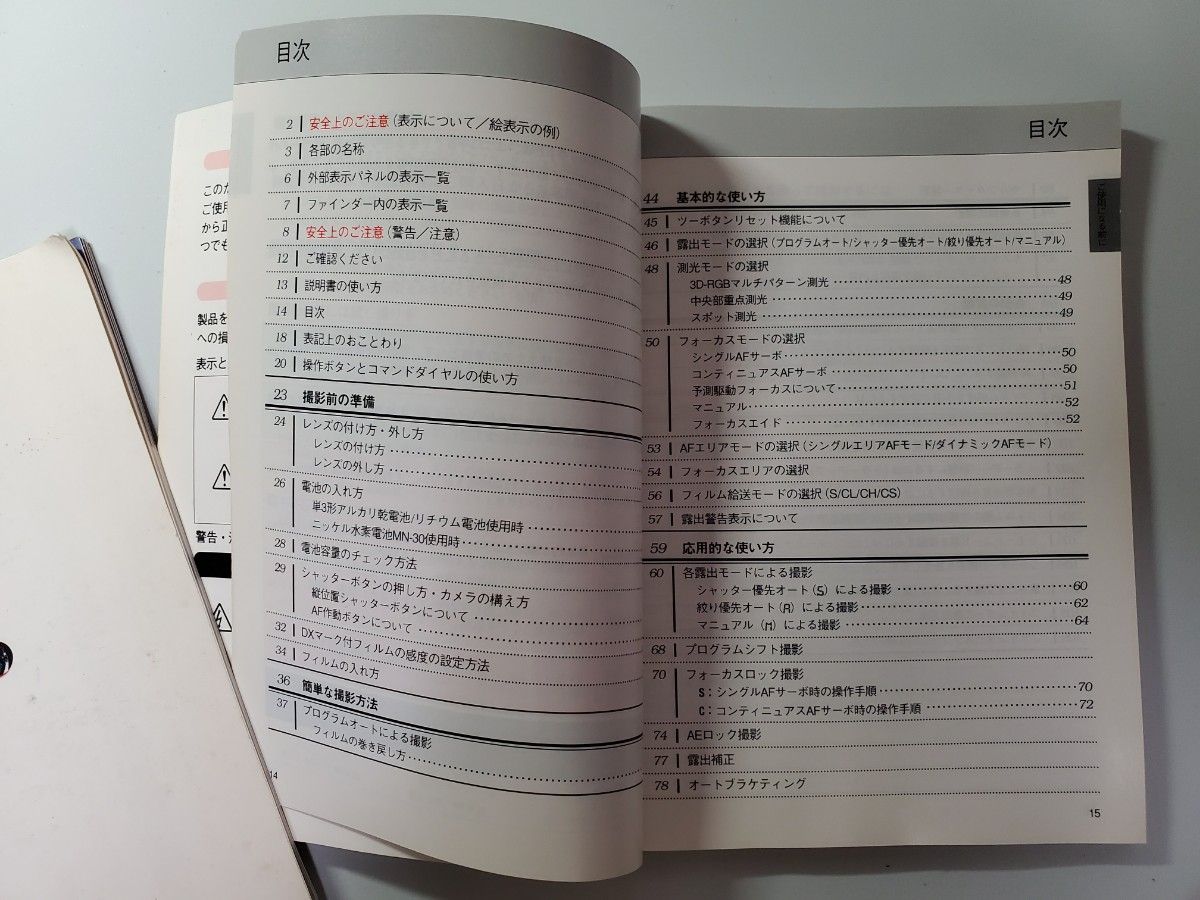 このた
ご使用
から正
つでも
製品を
への損
表示と
警告・注
目次
2 安全上のご注意(表示について/絵表示の例)
3 各部の名称
6 外部表示パネルの表示一覧
7 ファインダー内の表示一覧
8 安全上のご注意(警告/注意)
12 ご確認ください
13 説明書の使い方
14 目次
18 表記上のおことわり
20 操作ボタンとコマンドダイヤルの使い方
23 撮影前の準備
24 レンズの付け方・外し方
レンズの付け方
レンズの外し方
26 電池の入れ方
単3形アルカリ乾電池/リチウム電池使用時
ニッケル水素電池MN-30使用時
28 電池容量のチェック方法
29 シャッターボタンの押し方・カメラの構え方
縦位置シャッターボタンについて
AF作動ボタンについて
32 DXマーク付フィルムの感度の設定方法
34 フィルムの入れ方
36 簡単な撮影方法
37 プログラムオートによる撮影
フィルムの巻き戻し方
14
目次
ご使用になる前に
44 基本的な使い方
45 ツーボタンリセット機能について
46 露出モードの選択(プログラムオート/シャッター優先オート/絞り優先オート/マニュアル)
48 測光モードの選択
3D-RGBマルチパターン測光 48
中央部重点測光 49
スポット測光 49
50 フォーカスモードの選択
シングルAFサーボ 50
コンティニュアスAFサーボ 50
予測駆動フォーカスについて 51
マニュアル 52
フォーカスエイド 52
53 AFエリアモードの選択(シングルエリアAFモード/ダイナミックAFモード)
54 フォーカスエリアの選択
56 フィルム給送モードの選択(S/CL/CH/CS)
57 露出警告表示について
59 応用的な使い方
60 各露出モードによる撮影
シャッター優先オート(S)による撮影 60
絞り優先オート(A)による撮影 62
マニュアル(M)による撮影 64
68 プログラムシフト撮影
70 フォーカスロック撮影
S:シングルAFサーボ時の操作手順 70
C:コンティニュアスAFサーボ時の操作手順 72
74 AEロック撮影
77 露出補正
78 オートブラケティング
15